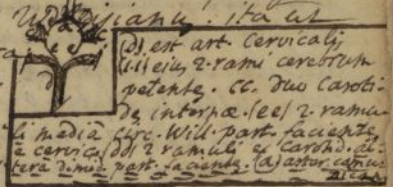 ita ut
(d) est art. cervicalis,
(i.i) eius 2. rami cerebrum
petente. cc. duo Caroti-
de interpæ. (ee) 2 ramu-
li mediã circ. Will. part. faciente
è cervica (dd) 2 ramuli ex Carotid. al-
terã dimid. part. faciente. (a) astor.